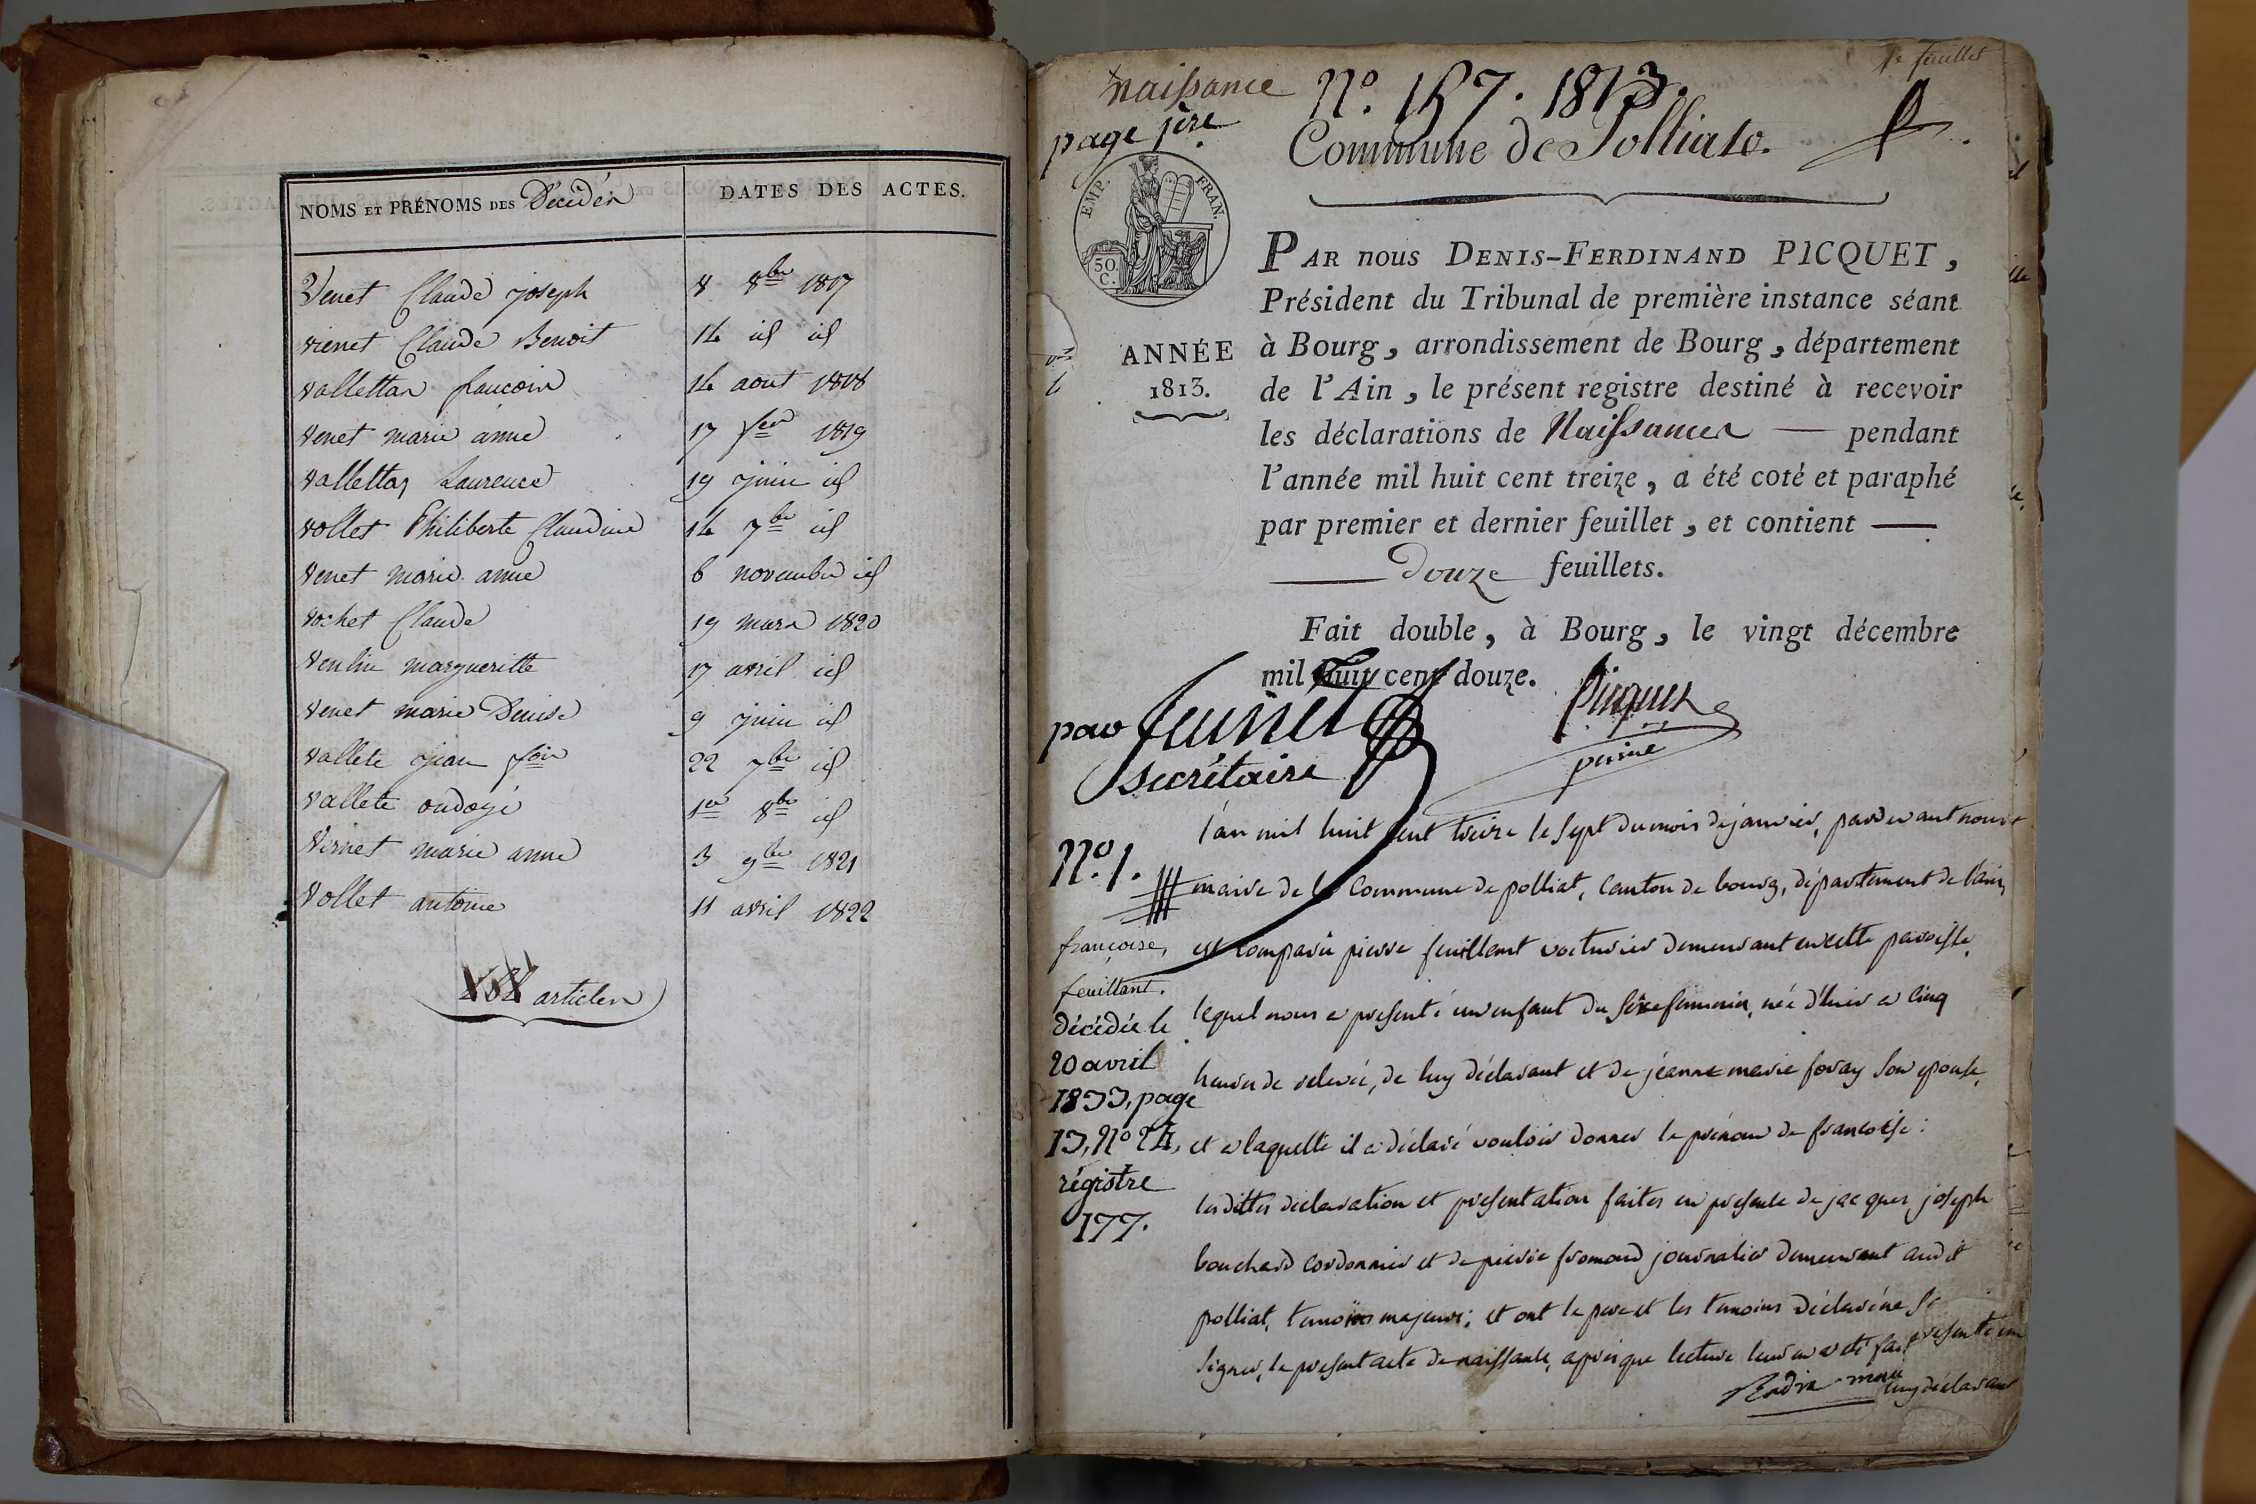 NOMS ET PRÉNOMS DES Décédés
DATES DES ACTES.
Venet Claude joseph 8 8bre 1817
vienet Claude Benoit 14 id id
vallettar 14 aout 1818
venet marie anne 17 fer 1819
vallettaz Laurence 19 juin id
vollet Philiberte Claudine 14 7bre id
venet marie anne 6 novembre id
vochet Claude 19 mars 1820
margueritte 17 avril id
venet marie Denise 9 juin id
vallete jean fois 22 7bre id
vallete ondoyé 1er 8bre id
Vernet marie anne 3 9bre 1821
Vollet antoine 11 avril 1822
articles
1r feuillet
naissance No. 157. 1813.
page 1ère.
Commune de Polliat.
EMP. FRAN.
50. C.
ANNÉE
1813.
PAR nous DENIS-FERDINAND PICQUET,
Président du Tribunal de première instance séant
à Bourg, arrondissement de Bourg, département
de l'Ain, le présent registre destiné à recevoir
les déclarations de Naissances — pendant
l'année mil huit cent treize, a été coté et paraphé
par premier et dernier feuillet, et contient —
— Douze feuillets.
Fait double, à Bourg, le vingt décembre
mil huit cent douze.
Picquet
par
secrétaire
No. 1.
françoise,
feuillant.
décédée le
20 avril
1833, page
13, No 24,
régistre
177.
l'an mil huit cent treize le sept du mois de janvier, pardevant nous
maire de la commune de polliat, canton de bourg, département de l'ain,
est comparu pierre feuillant voiturier demeurant en cette paroisse,
lequel nous a presenté un enfant du sexe feminin, née d'hier a cinq
heures de relevée, de luy déclarant et de jéanne marie foray son epouse,
et a laquelle il a déclaré vouloir donner le prénom de francoise:
les dittes déclaration et presentation faites en presence de jacques joseph
bouchard cordonnier et de pierre fromond journalier demeurant audit
polliat, temoins majeurs; et ont le pere et les temoins déclaré ne
signer, le present acte de naissance, apres que lecture leur en a été